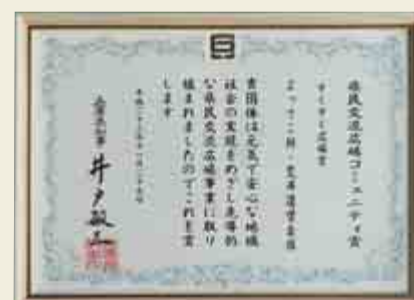 県民交流広場コミュニティ賞
すくすく広場賞
貴団体は元気で安心な地域
社会の実現をめざし先導的
な県民交流広場事業に取り
組まれましたのでこれを賞
します
兵庫県知事 井戸敏三